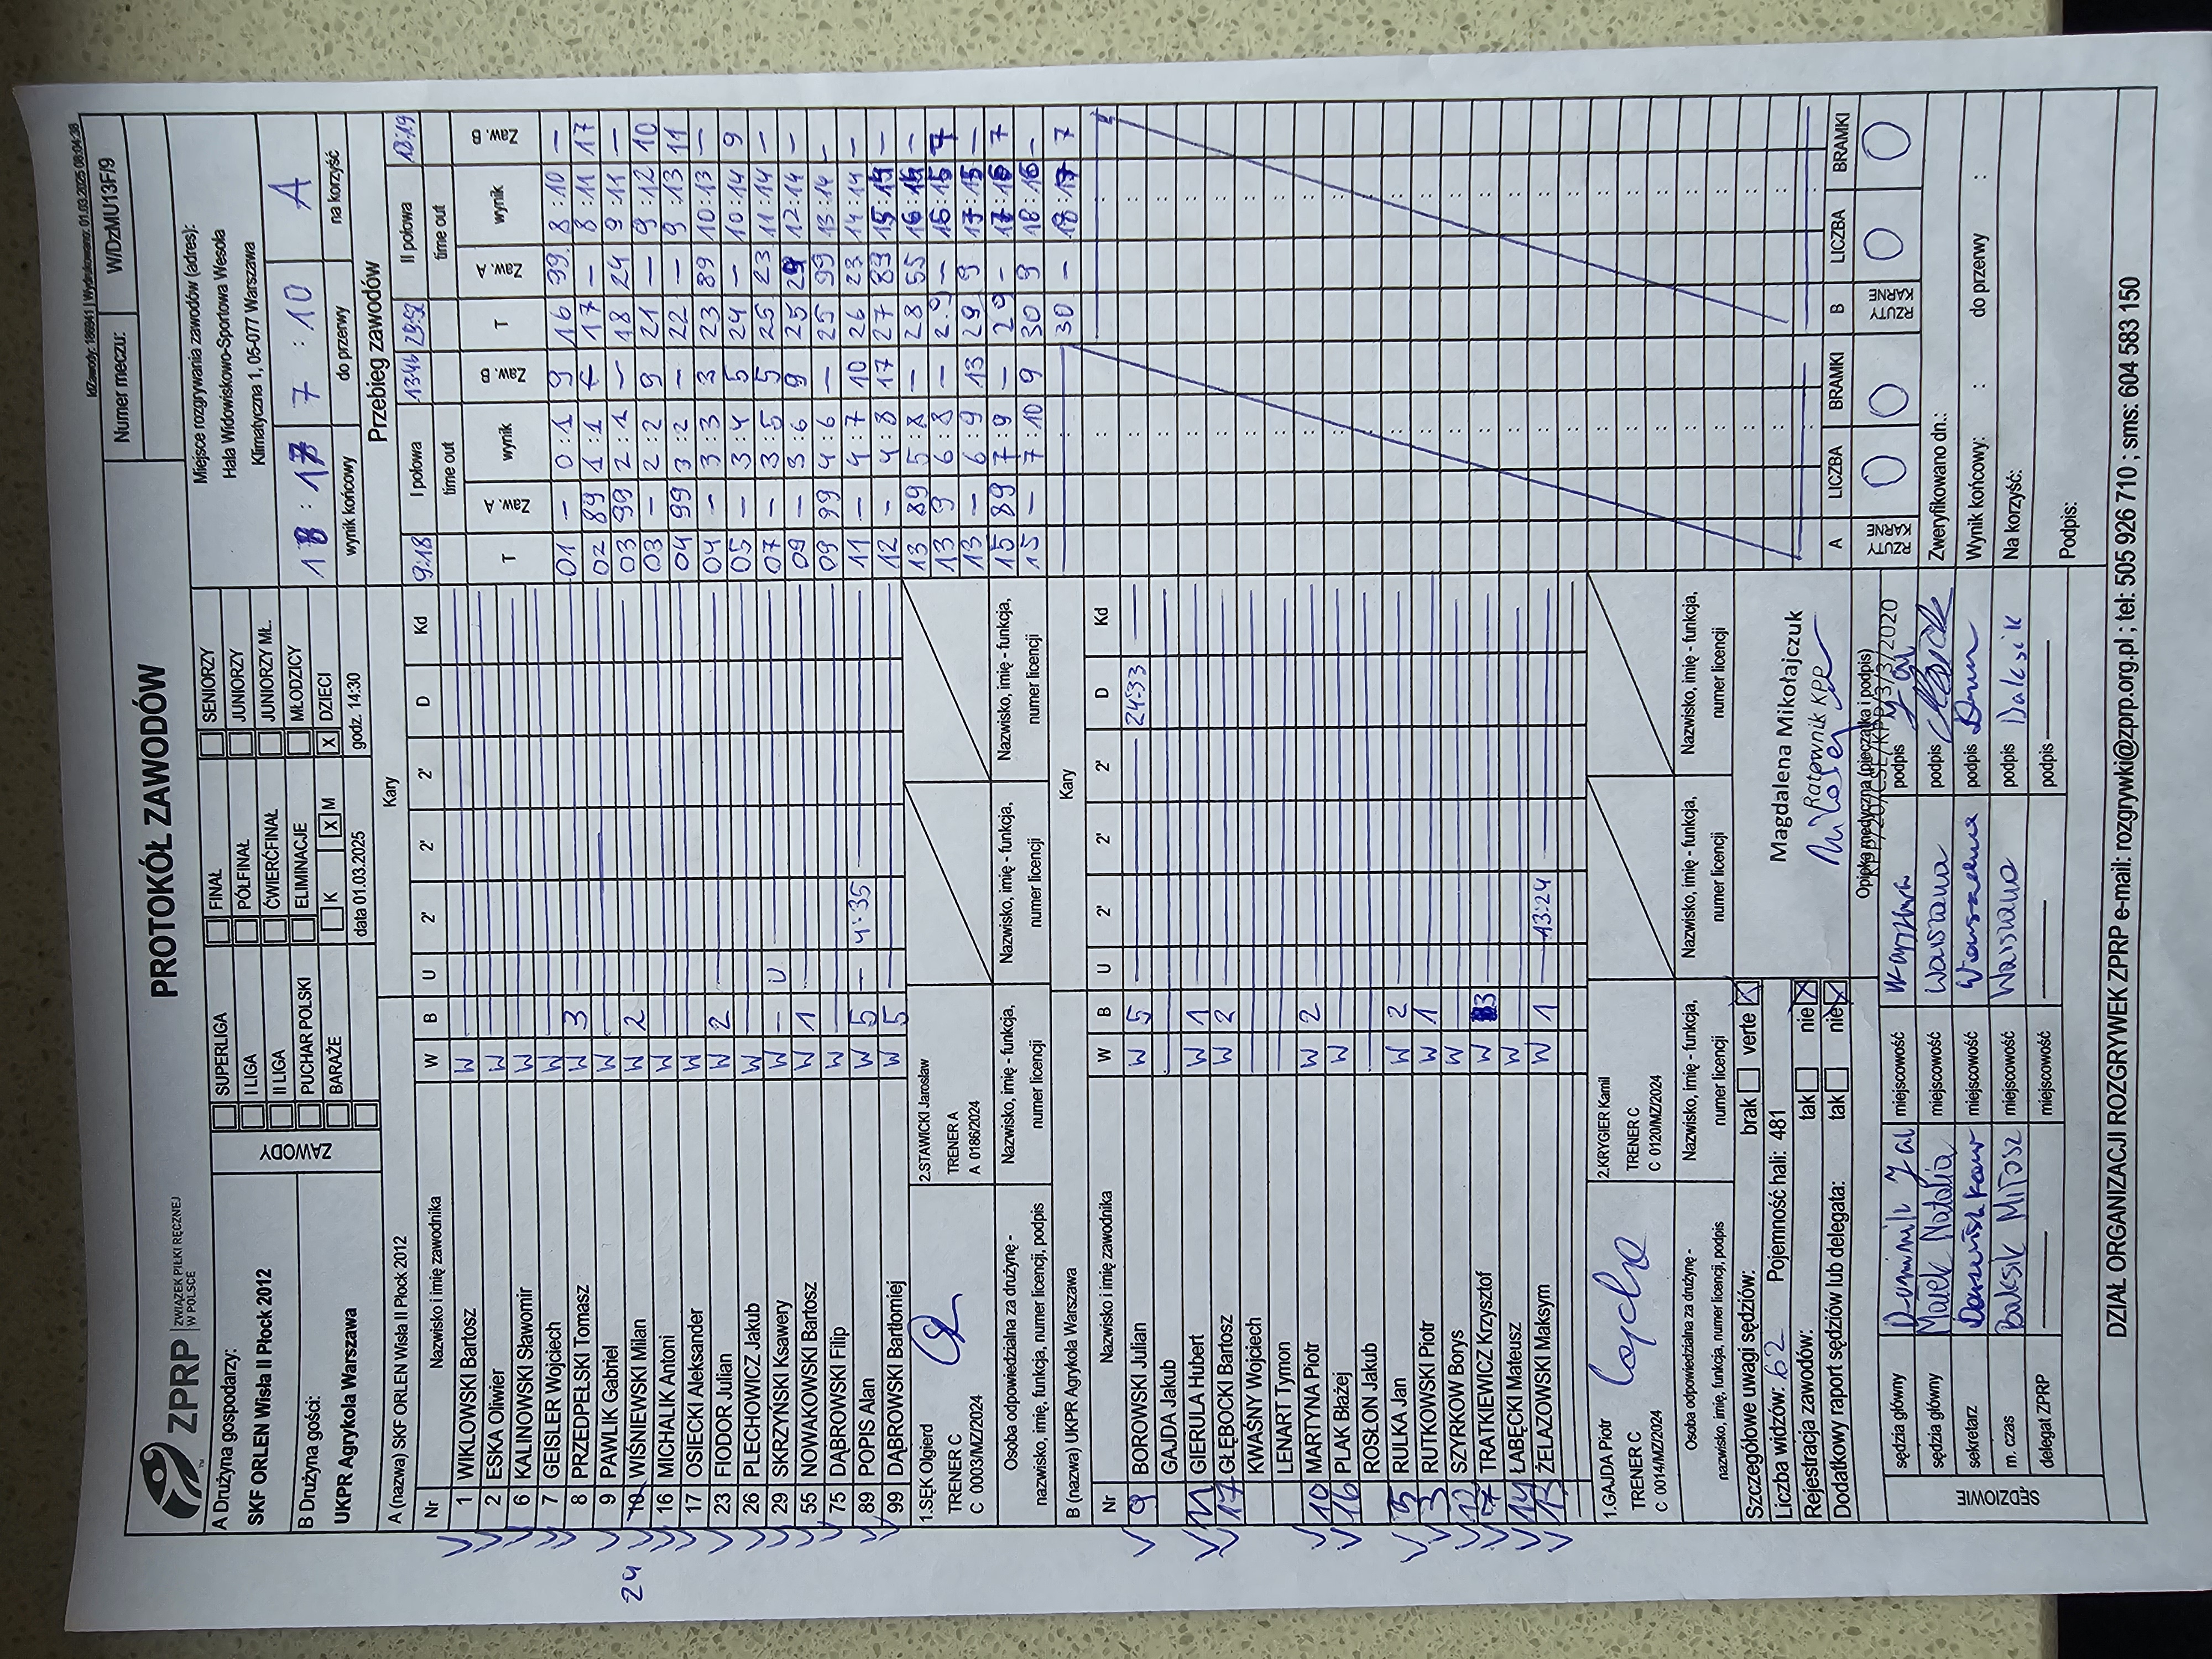 IdZawody: 186941 | Wydrukowano: 01.03.2025 08:04:38
ZPRP ZWIĄZEK PIŁKI RĘCZNEJ W POLSCE
PROTOKÓŁ ZAWODÓW
Numer meczu: W/DzMU13F/9
A Drużyna gospodarzy:
SKF ORLEN Wisła II Płock 2012
B Drużyna gości:
UKPR Agrykola Warszawa
ZAWODY
SUPERLIGA
I LIGA
II LIGA
PUCHAR POLSKI
BARAŻE
FINAŁ
PÓŁFINAŁ
ĆWIERĆFINAŁ
ELIMINACJE
K X M
SENIORZY
JUNIORZY
JUNIORZY MŁ.
MŁODZICY
X DZIECI
data 01.03.2025 godz. 14:30
Miejsce rozgrywania zawodów (adres):
Hala Widowiskowo-Sportowa Wesoła
Klimatyczna 1, 05-077 Warszawa
18 : 17 7 : 10 A
wynik końcowy do przerwy na korzyść
A (nazwa) SKF ORLEN Wisła II Płock 2012 Kary
Nr Nazwisko i imię zawodnika W B U 2' 2' 2' D Kd
1 WIKLOWSKI Bartosz W
2 ESKA Oliwier W
6 KALINOWSKI Sławomir W
7 GEISLER Wojciech W
8 PRZEDPEŁSKI Tomasz W 3
9 PAWLIK Gabriel W
24 10 WIŚNIEWSKI Milan W 2
16 MICHALIK Antoni W
17 OSIECKI Aleksander W
23 FIODOR Julian W 2
26 PLECHOWICZ Jakub W
29 SKRZYŃSKI Ksawery W - U
55 NOWAKOWSKI Bartosz W 1
75 DĄBROWSKI Filip W
89 POPIS Alan W 5 - 4:35
99 DĄBROWSKI Bartłomiej W 5
1.SĘK Olgierd
TRENER C
C 0003/MZ/2024
2.STAWICKI Jarosław
TRENER A
A 0186/2024
Osoba odpowiedzialna za drużynę - nazwisko, imię, funkcja, numer licencji, podpis
Nazwisko, imię - funkcja, numer licencji
Nazwisko, imię - funkcja, numer licencji
Nazwisko, imię - funkcja, numer licencji
B (nazwa) UKPR Agrykola Warszawa Kary
Nr Nazwisko i imię zawodnika W B U 2' 2' 2' D Kd
9 BOROWSKI Julian W 5 24:33
GAJDA Jakub
GIERULA Hubert W 1
17 GŁĘBOCKI Bartosz W 2
KWAŚNY Wojciech
LENART Tymon
10 MARTYNA Piotr W 2
16 PLAK Błażej W
ROSŁON Jakub
5 RULKA Jan W 2
3 RUTKOWSKI Piotr W 1
12 SZYRKOW Borys W
7 TRATKIEWICZ Krzysztof W 3
14 ŁABĘCKI Mateusz W
13 ŻELAZOWSKI Maksym W 1 13:24
1.GAJDA Piotr
TRENER C
C 0014/MZ/2024
2.KRYGIER Kamil
TRENER C
C 0120/MZ/2024
Osoba odpowiedzialna za drużynę - nazwisko, imię, funkcja, numer licencji, podpis
Nazwisko, imię - funkcja, numer licencji
Nazwisko, imię - funkcja, numer licencji
Nazwisko, imię - funkcja, numer licencji
Szczegółowe uwagi sędziów: brak verte X
Liczba widzów: 62 Pojemność hali: 481
Rejestracja zawodów: tak nie X
Dodatkowy raport sędziów lub delegata: tak nie X
Magdalena Mikołajczuk
Ratownik KPP
Opieka medyczna (pieczątka i podpis)
SĘDZIOWIE
sędzia główny Dominik miejscowość Warszawa podpis
sędzia główny Małek Natalia miejscowość Warszawa podpis
sekretarz miejscowość Warszawa podpis
m. czas Balksik Miłosz miejscowość Warszawa podpis Balcsik
delegat ZPRP miejscowość podpis
Przebieg zawodów
9:18 I połowa 13:46 29:52 II połowa 18:19
time out time out
T Zaw. A wynik Zaw. B T Zaw. A wynik Zaw. B
01 - 0:1 9 16 99 8:10 -
02 89 1:1 - 17 - 8:11 17
03 99 2:1 - 18 24 9:11 -
03 - 2:2 9 21 - 9:12 10
04 99 3:2 - 22 - 9:13 11
04 - 3:3 3 23 89 10:13 -
05 - 3:4 5 24 - 10:14 9
07 - 3:5 5 25 23 11:14 -
09 - 3:6 9 25 24 12:14 -
09 99 4:6 - 25 99 13:14 -
11 - 4:7 10 26 23 14:14 -
12 - 4:8 17 27 89 15:14 -
13 89 5:8 - 28 55 16:14 -
13 9 6:8 - 29 - 16:15 7
13 - 6:9 13 29 9 17:15 -
15 89 7:9 - 29 - 17:16 7
15 - 7:10 9 30 9 18:16 -
30 - 18:17 7
A RZUTY KARNE LICZBA BRAMKI B RZUTY KARNE LICZBA BRAMKI
0 0 0 0
Zweryfikowano dn.:
Wynik końcowy: : do przerwy :
Na korzyść:
Podpis:
DZIAŁ ORGANIZACJI ROZGRYWEK ZPRP e-mail: rozgrywki@zprp.org.pl ; tel: 505 926 710 ; sms: 604 583 150